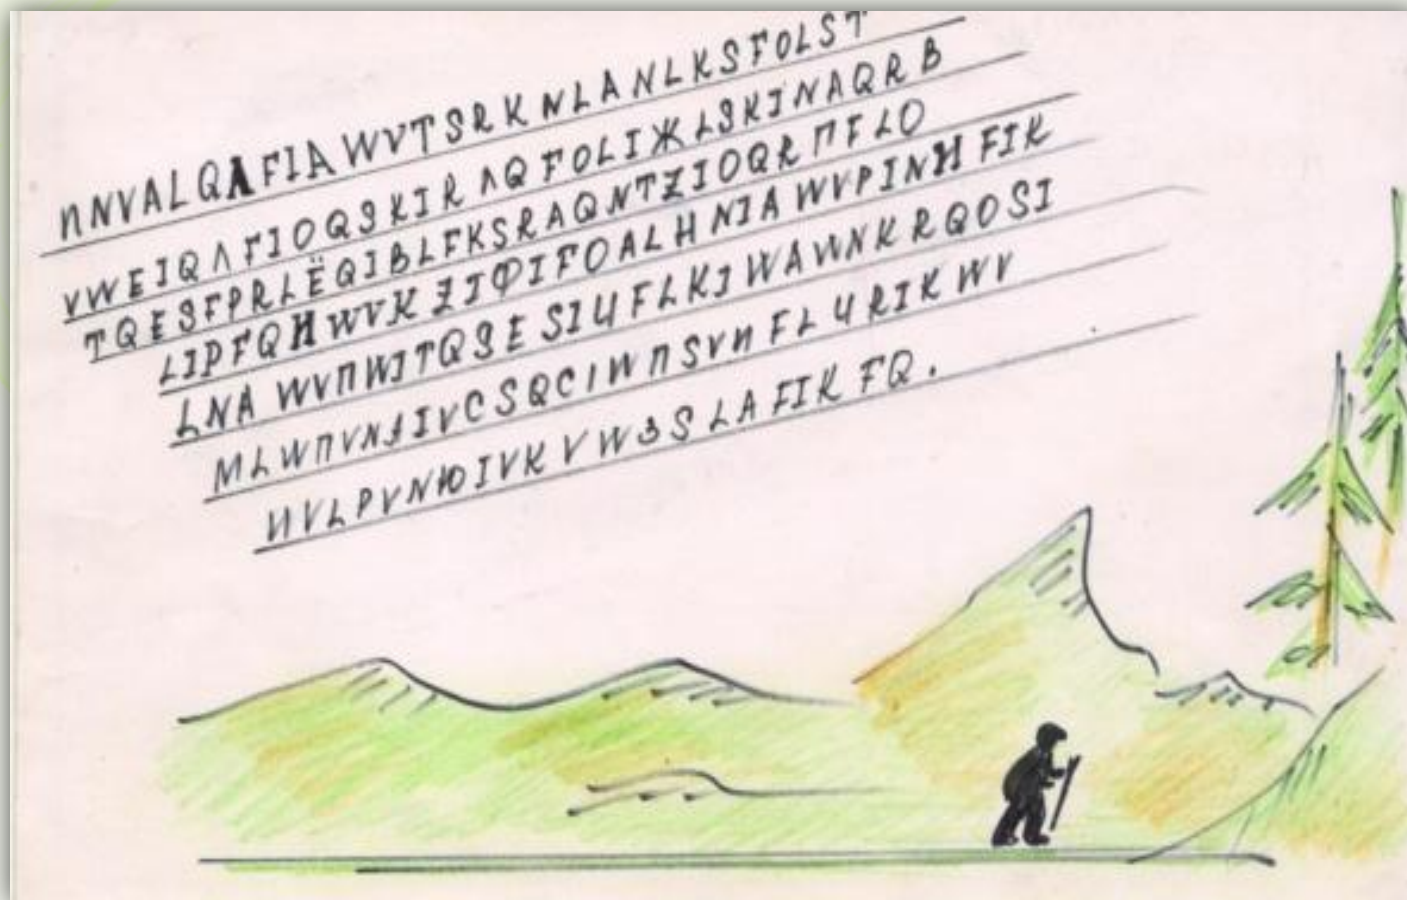 ЛNVALQΛFIA WVTSRKNLANLKSFOLST
VWEIQΛFIOQSKIRΛQFOLIЖLSKINAQRB
TQESFPRLЁQIBLFKSRAQNTZIOQRПFLO
LIPFQИWVKZIФIFOALHNIAWVPINИFIK
LNAWVПWITQSESIЦFLKIWAWNKRQOSI
MLWПVNAIVCSQCIWПSVИFLЧRIKWV
ИVLPVNЮIVKVWЗSLAFIKFQ.